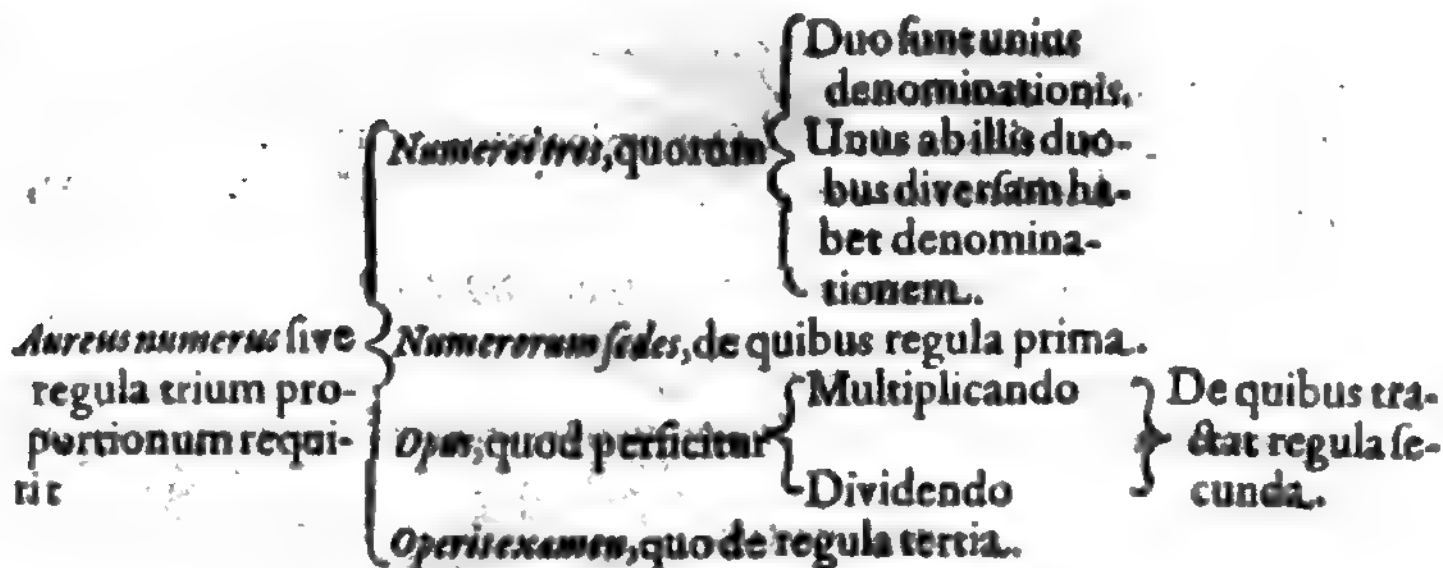 Aureus numerus sive
regula trium pro-
portionum requi-
rit
Numeros tres, quorum
Duo sunt unius
denominationis.
Unus ab illis duo-
bus diversam ha-
bet denomina-
tionem.
Numerorum sedes, de quibus regula prima.
Opus, quod perficitur
Multiplicando
Dividendo
De quibus tra-
ctat regula se-
cunda.
Operis examen, quo de regula tertia.